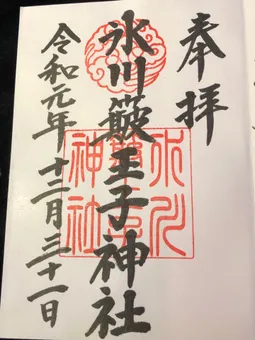 奉拝
氷川簸王子神社
令和元年十二月三十一日
氷川
神社